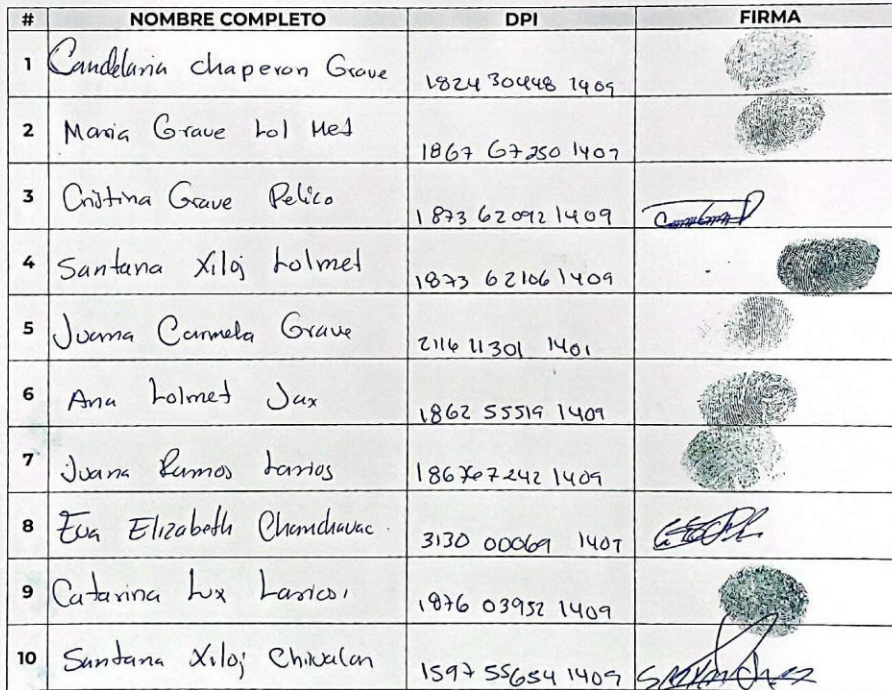 # NOMBRE COMPLETO DPI FIRMA
1 Candelaria chaperon Grave 1824 30448 1409
2 Maria Grave Lol Met 1867 67250 1407
3 Cristina Grave Pelico 1873 62092 1409
4 Santana Xiloj Lolmet 1873 62106 1409
5 Juana Carmela Grave 2116 11301 1401
6 Ana Lolmet Jax 1862 55519 1409
7 Juana Ramos Larios 1867 67242 1409
8 Eva Elizabeth Chanchavac 3130 00069 1407
9 Catarina Lux Larios 1876 03952 1409
10 Santana Xiloj Chivalan 1597 55654 1409